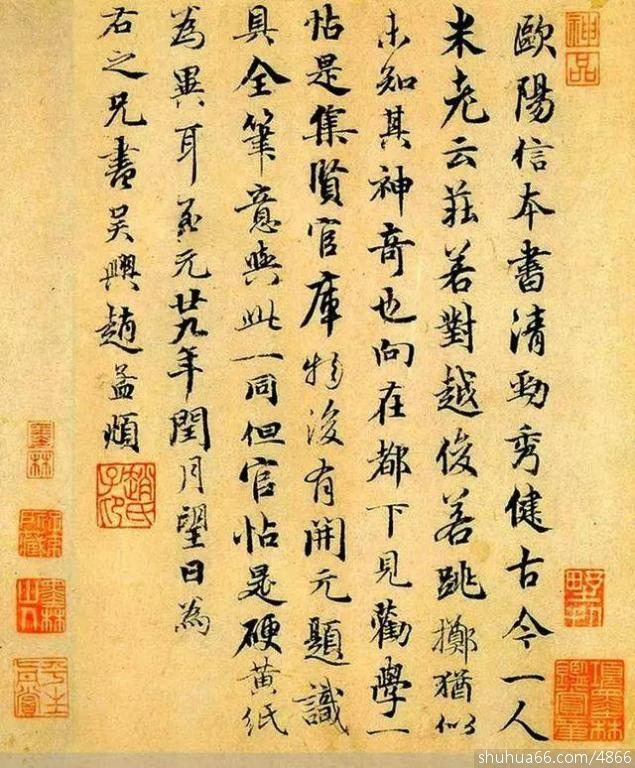 歐陽信本書清勁秀健古今一人
米老云莊若對越俊若跳擲猶似
未知其神奇也向在都下見勸學一
帖是集賢官庫物後有開元題識
具全筆意與此一同但官帖是硬黃紙
為異耳至元廿九年閏月望日為
右之兄書吳興趙孟頫
趙氏子昂
神品
墨林
shuhua66.com/4866